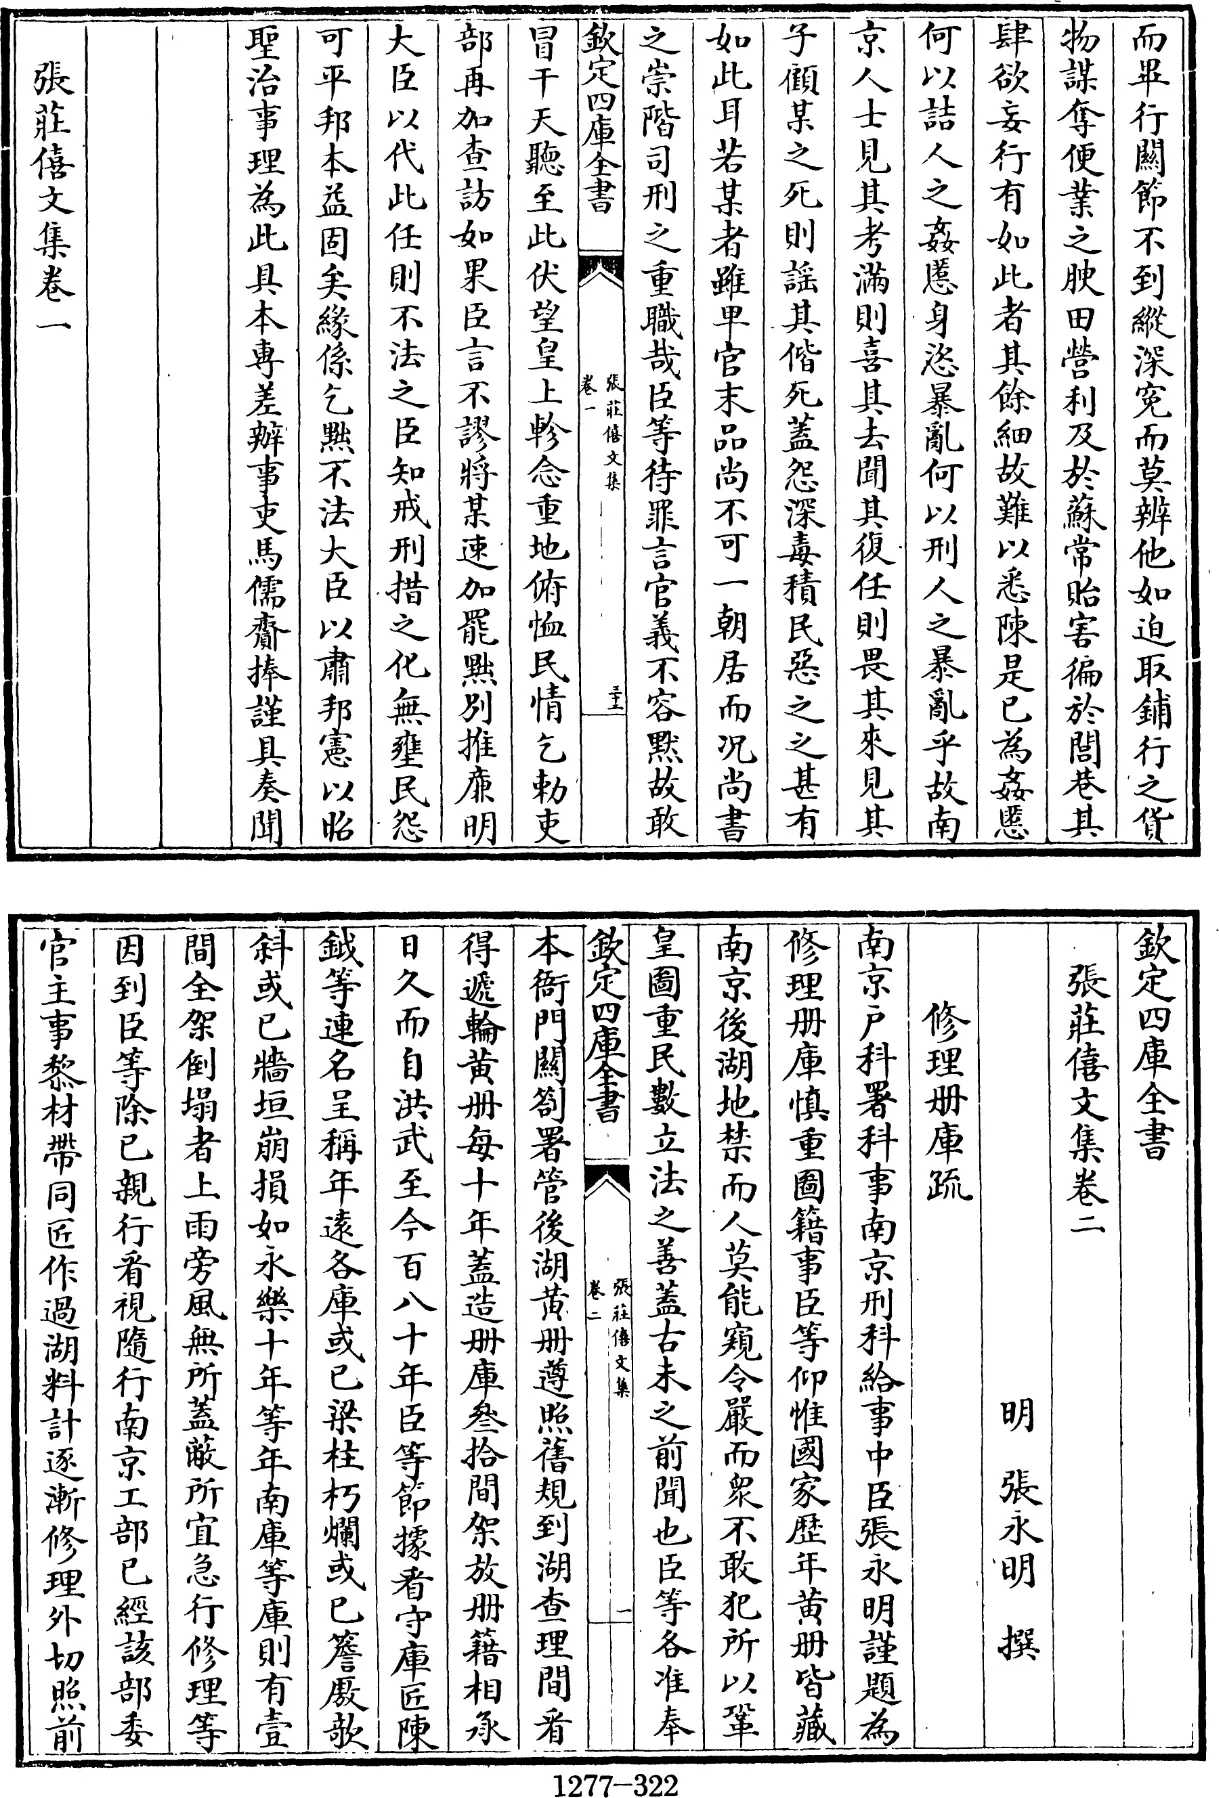 而畢行關節不到縱深寃而莫辨他如迫取鋪行之貨
物謀奪便業之腴田營利及於蘇常貽害徧於閭巷其
肆欲妄行有如此者其餘細故難以悉陳是已為姦慝
何以詰人之姦慝身恣暴亂何以刑人之暴亂乎故南
京人士見其考滿則喜其去聞其復任則畏其來見其
子顧某之死則謡其偕死蓋怨深毒積民惡之之甚有
如此耳若某者雖卑官末品尚不可一朝居而況尚書
之崇階司刑之重職哉臣等待罪言官義不容默故敢
欽定四庫全書
張莊僖文集
卷一
三十三
冒干天聽至此伏望皇上軫念重地俯恤民情乞勅吏
部再加查訪如果臣言不謬將某速加罷黜別推廉明
大臣以代此任則不法之臣知戒刑措之化無壅民怨
可平邦本益固矣緣係乞黜不法大臣以肅邦憲以昭
聖治事理為此具本專差辦事吏馬儒齎捧謹具奏聞
張莊僖文集卷一
欽定四庫全書
張莊僖文集卷二
明 張永明 撰
修理册庫疏
南京戶科署科事南京刑科給事中臣張永明謹題為
修理册庫慎重圖籍事臣等仰惟國家歷年黃册皆藏
南京後湖地禁而人莫能窺令嚴而衆不敢犯所以鞏
皇圖重民數立法之善蓋古未之前聞也臣等各准奉
欽定四庫全書
張莊僖文集
卷二
一
本衙門關劄署管後湖黃册遵照舊規到湖查理間看
得遞輪黃册每十年蓋造册庫叁拾間架放册籍相承
日久而自洪武至今百八十年臣等節據看守庫匠陳
鉞等連名呈稱年遠各庫或已梁柱朽爛或已簷廒欹
斜或已牆垣崩損如永樂十年等年南庫等庫則有壹
間全架倒塌者上雨旁風無所蓋蔽所宜急行修理等
因到臣等除已親行看視隨行南京工部已經該部委
官主事黎材帶同匠作過湖料計逐漸修理外切照前
1277-322